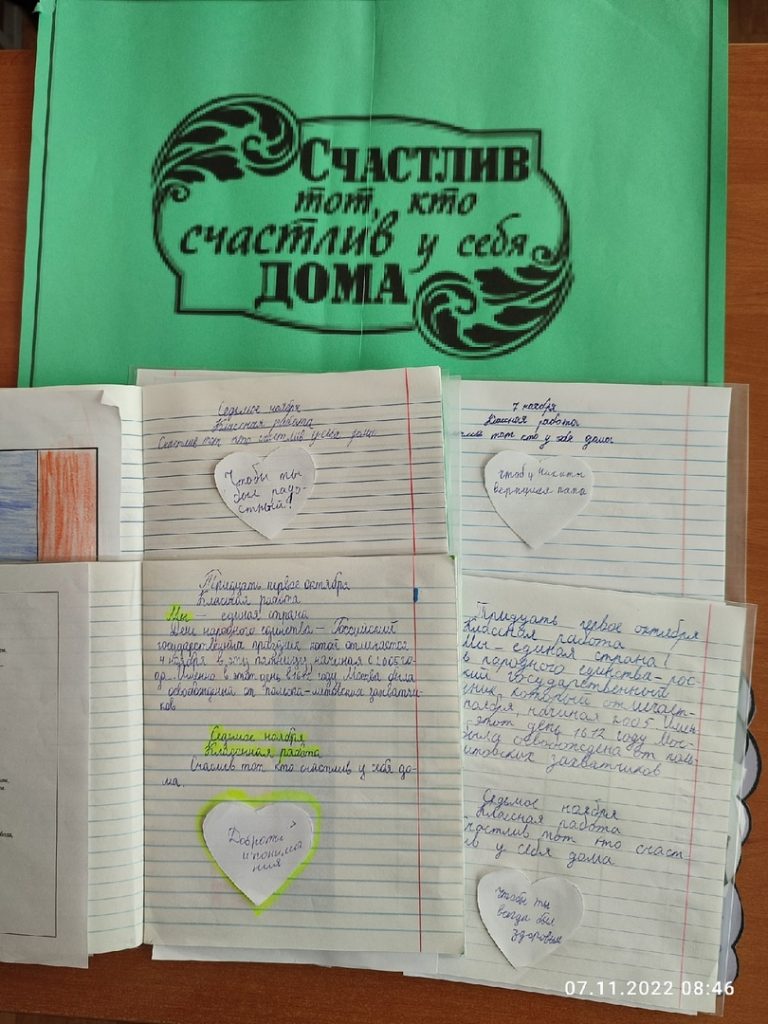 СЧАСТЛИВ
тот, кто
счастлив у себя
ДОМА
Седьмое ноября
Классная работа
Счастлив тот кто счастлив у себя дома
Чтобы ты
был радо-
стный!
7 ноября
Классная работа
тот кто у себя дома
чтоб у Никиты
вернулся папа
Тридцать первое октября
Классная работа
Мы — единая страна
День народного единства — Российский
государственный праздник
4 ноября в эту пятницу, начиная с 2005 го-
да. Именно в этот день в 1612 году Москва была
освобождена от польско-литовских захватчи-
ков
Седьмое ноября
Классная работа
Счастлив тот кто счастлив у себя до-
ма.
Доброты
и понима
ния
Тридцать первое октября
Классная работа
Мы-единая страна!
народного единства-рос-
кий государственный
дник, который отмечает-
ноября, начиная 2005 Имен
этот день 1612 году Мос-
была освобождена от поль
итовских захватчиков
Седьмое ноября
Классная работа
частлив тот кто счаст
ив у себя дома
Чтобы ты
всегда был
здоровым
07.11.2022 08:46